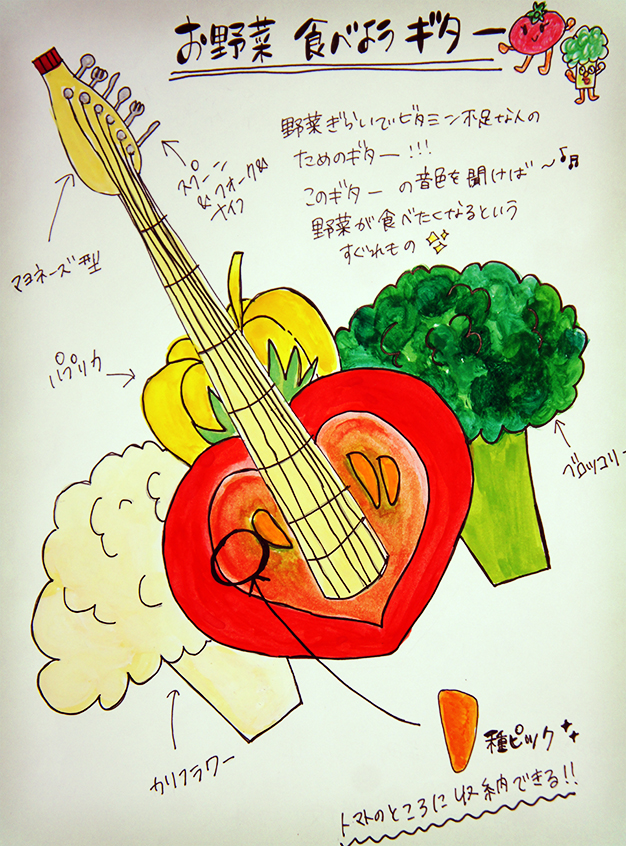 お野菜 食べようギター
野菜ぎらいでビタミン不足な人の
ためのギター!!!
このギターの音色を聞けば~♪♬
野菜が食べたくなるという
すぐれもの
スプーン
&フォーク&
ナイフ
マヨネーズ型
パプリカ
ブロッコリー
カリフラワー
種ピック
トマトのところに収納できる!!